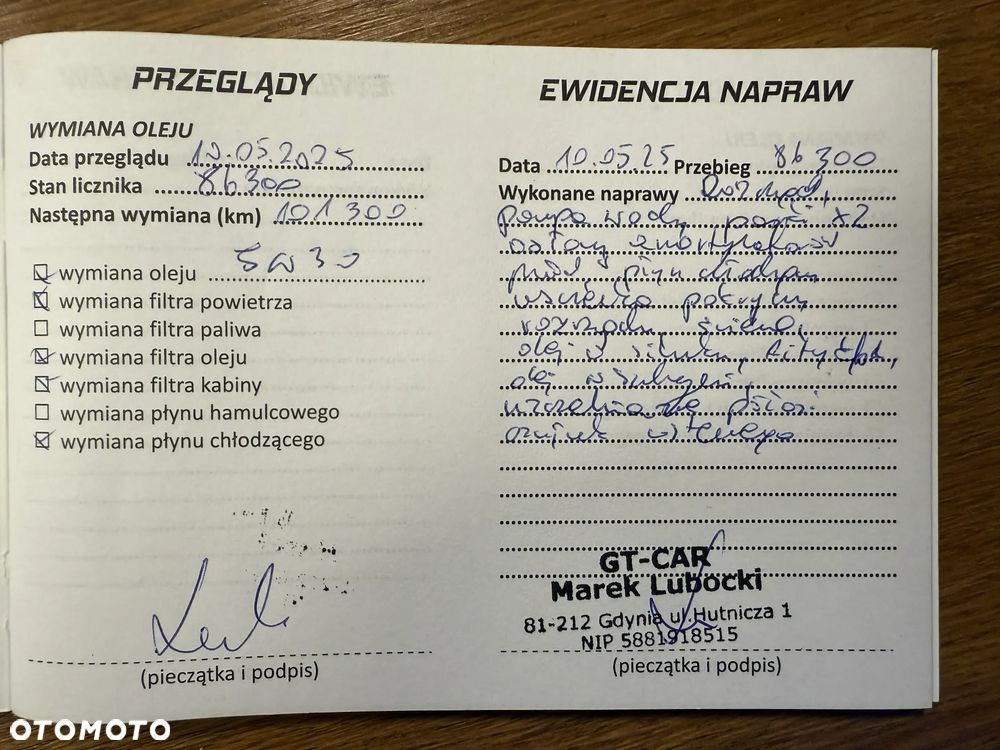 PRZEGLĄDY
WYMIANA OLEJU
Data przeglądu 10.05.2025
Stan licznika 86300
Następna wymiana (km) 101 300
wymiana oleju 5W30
wymiana filtra powietrza
wymiana filtra paliwa
wymiana filtra oleju
wymiana filtra kabiny
wymiana płynu hamulcowego
wymiana płynu chłodzącego
(pieczątka i podpis)
EWIDENCJA NAPRAW
Data 10.05.25 Przebieg 86300
Wykonane naprawy Rozrząd,
pompa wody, paski x2
osłony amortyzatorów
przód, płyn
uszczelka pokrywy
rozrządu, świece,
olej w silniku, filtry
olej w
(pieczątka i podpis)
GT-CAR
Marek Lubocki
81-212 Gdynia ul.Hutnicza 1
NIP 5881918515
OTOMOTO